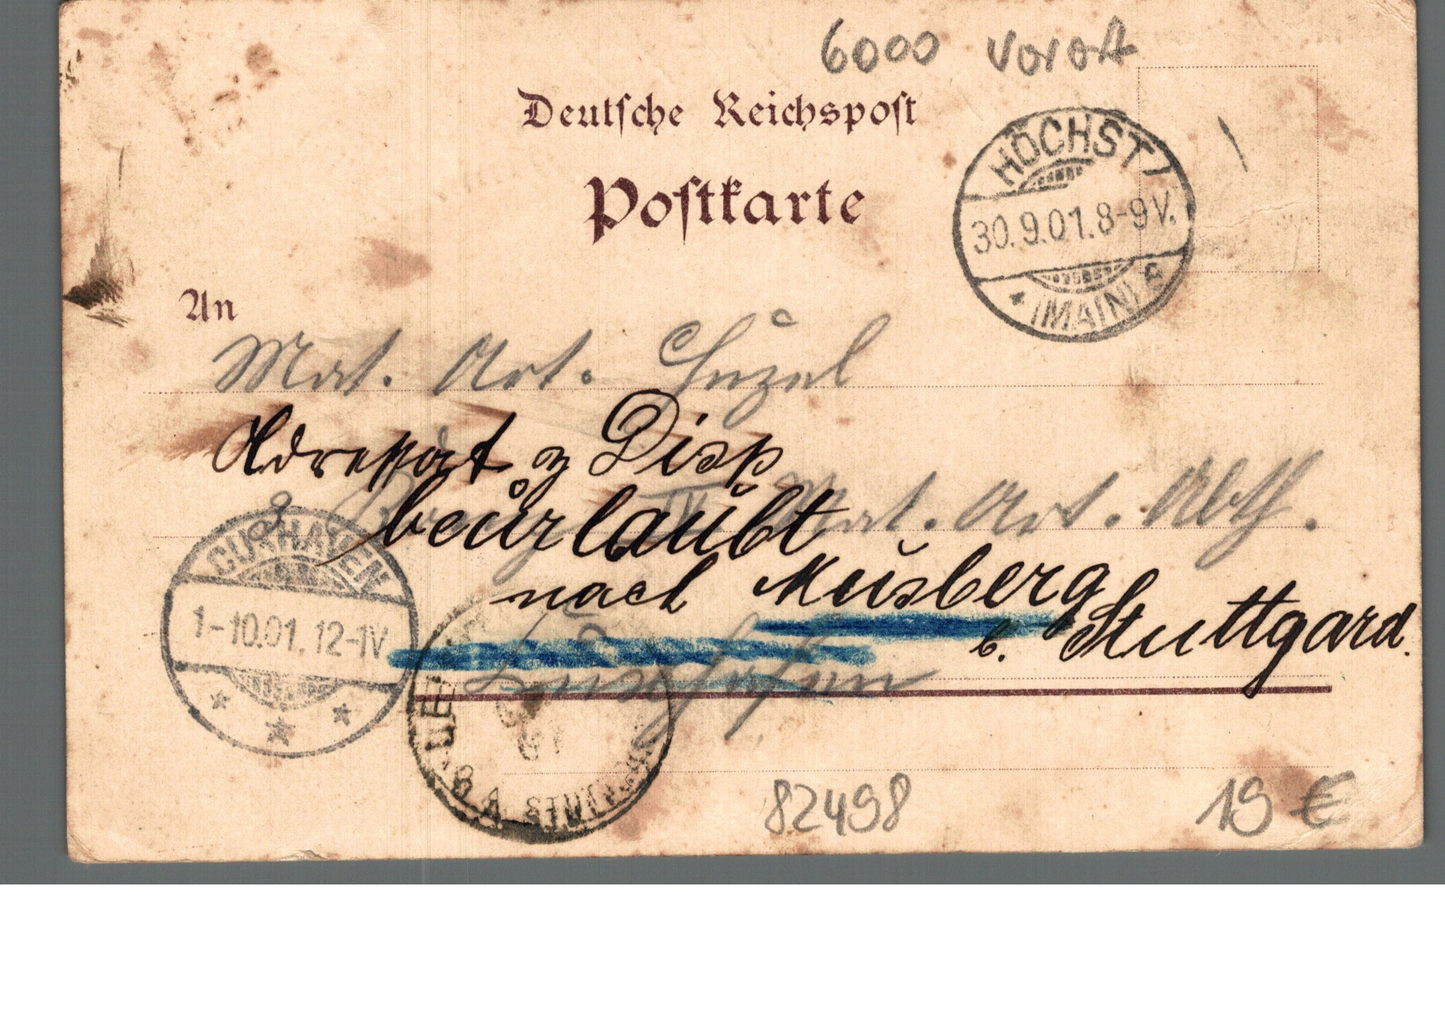 6000 Vorort
Deutsche Reichspost
Postkarte
HÖCHST
30.9.01.8-9V.
(MAIN)
An
Mat. Art.
Adressat z Disp
beurlaubt
Mat. Art. Abth.
nach Musberg
b. Stuttgard.
CUXHAVEN
1-10.01.12-1V
Cuxhafen
O.A. STUTTGART
82498
19 €